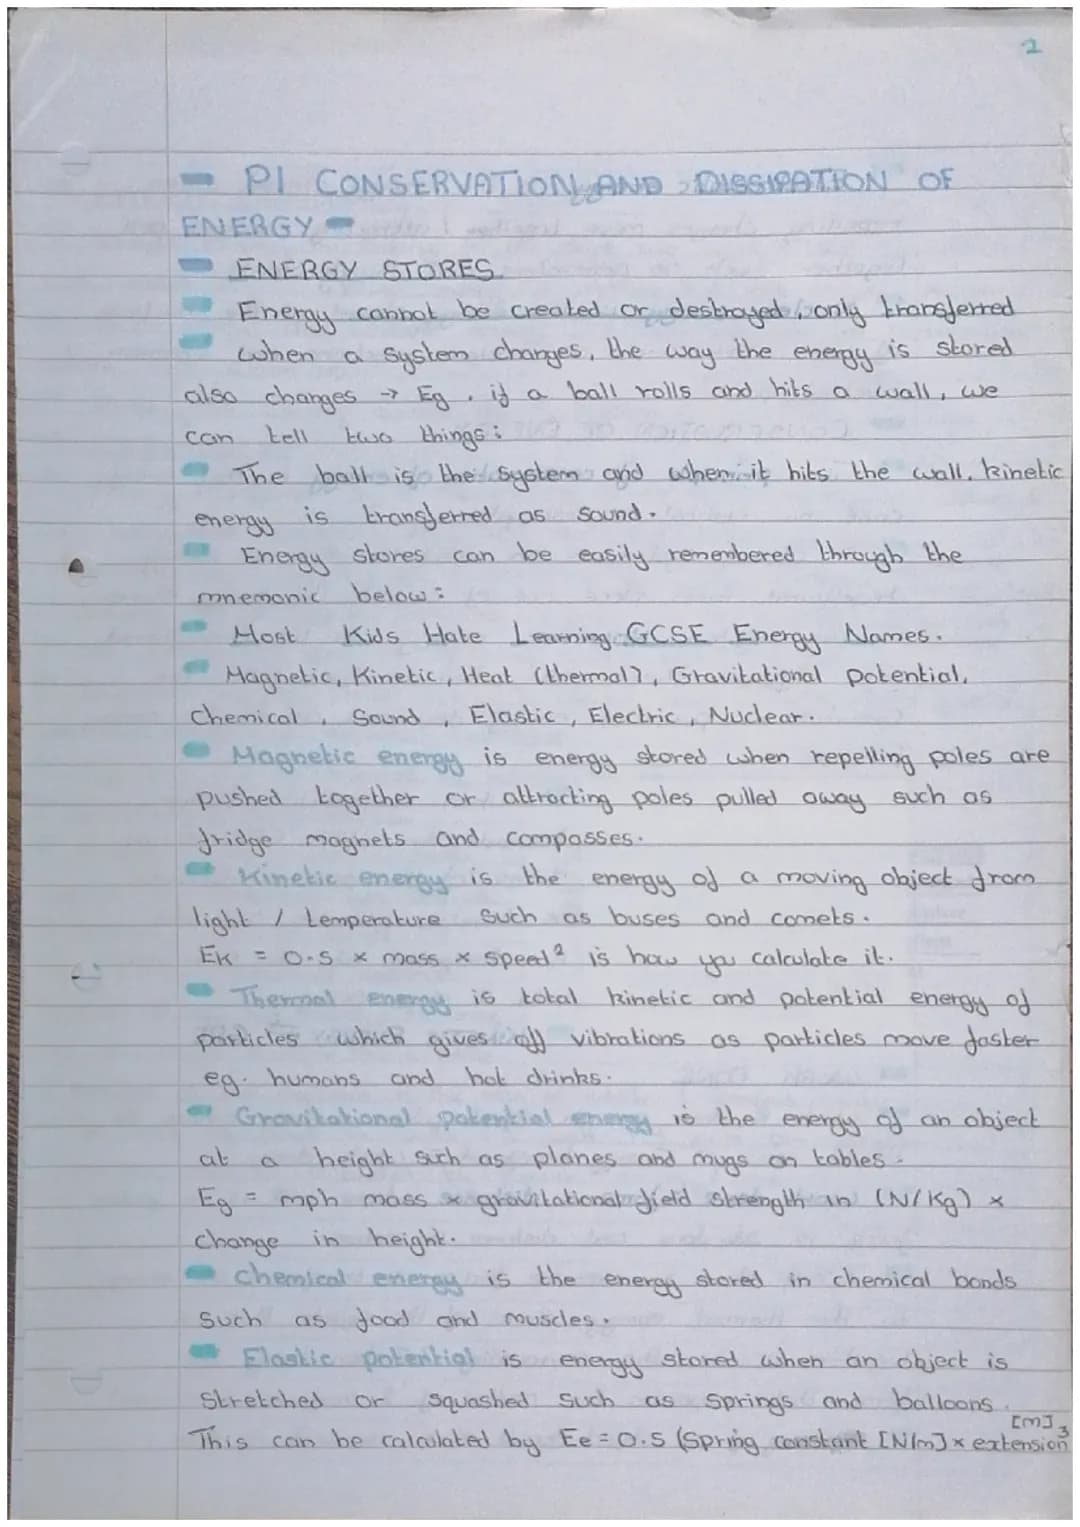 2
P1 CONSERVATION AND DISSIPATION OF
ENERGY
ENERGY STORES
Energy cannot be created or destroyed, only transferred
when a system changes, the way the energy is stored
also changes → Eg. if a ball rolls and hits a wall, we
can tell two things:
The ball is the system and when it hits the wall, kinetic
energy is transferred as sound.
Energy stores can be easily remembered through the
mnemonic below:
Most Kids Hate Learning GCSE Energy Names.
Magnetic, Kinetic, Heat (thermal), Gravitational potential,
Chemical, Sound, Elastic, Electric, Nuclear.
Magnetic energy is energy stored when repelling poles are
pushed together or attracting poles pulled away such as
fridge magnets and compasses.
Kinetic energy is the energy of a moving object from
light / temperature such as buses and comets.
EK = 0.5 × mass × speed² is how you calculate it.
Thermal energy is total kinetic and potential energy of
particles which gives off vibrations as particles move faster
eg. humans and hot drinks.
Gravitational potential energy is the energy of an object
at a height such as planes and mugs on tables.
Eg = mph mass × gravitational field strength in (N/Kg) ×
change in height.
Chemical energy is the energy stored in chemical bonds
such as food and muscles.
Elastic potential is energy stored when an object is
stretched or squashed such as springs and balloons.
[m]
This can be calculated by Ee = 0.5 (Spring constant [N/m] × extension³